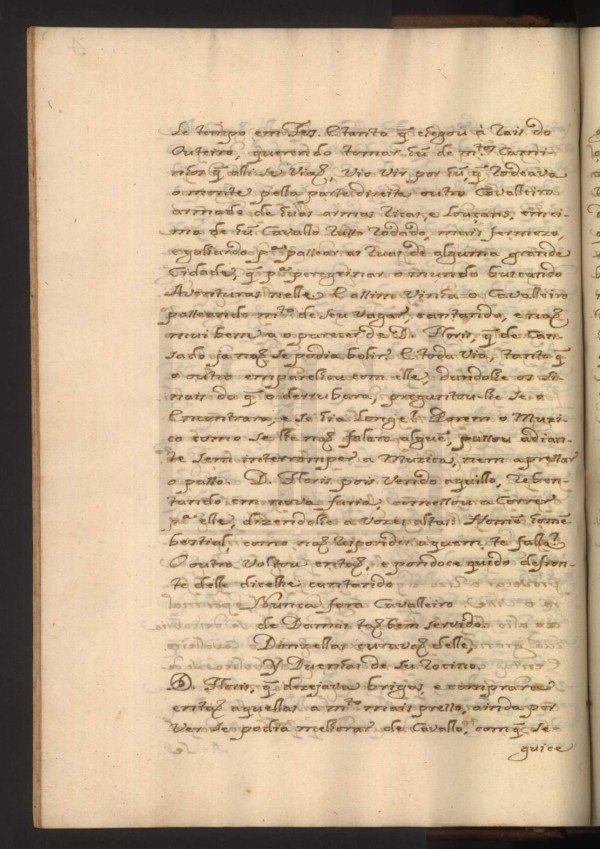 de tempo em Fes. E tanto q̃ chegou á Rais do
Outeiro, querendo tomar hũ de m.tos Cami-
nhos q̃ alli se viaõ, vio vir por hũ, q̃ rodeava
o monte pella parte direita outro Cavalleiro
armado de huas armas Ricas, e Louçans, em ci-
ma de hũ Cavallo Russo Rodado, mais fermozo,
e galhardo p.ª passear as Ruas de alguma grande
Cidade, q̃ p.ª peregrinar o mundo buscando
Aventuras nelle. E assim vinha o Cavalleiro
passeando m.to de seu vagar, e cantando, e naõ
mui bem a o parecer de D. Floris, q̃ de Can-
sado ja naõ se podia bolir. E toda via, tanto q̃
o outro emparelhou com elle, dandolhe os si-
nais do q̃ o derrubara, preguntou-lhe se o
Encontrara, e se hia Longe. Porem o Muzi-
co como se lhe naõ falara alguẽ, passou adian-
te sem interromper a Muzica, nem apressar
o passo. D. Floris pois vendo aquillo, reben-
tando em nova furia, comessou a Correr
p.ª elle, dizendolhe a vozes altas: Homẽ homẽ
bestial, como naõ respondes a quem te falla?
O outro voltou entaõ, e pondoce quedo defron-
te delle dicelhe cantando
Nunca fora Cavalleiro
de Damas taõ bem servido
Donzellas curavaõ delle,
Y Duenhas de su rocino.
D. Floris, q̃ dezejava brigas, e comprara
entaõ aquellas a m.to mais presso, ainda por
ver se podia melhorar de Cavallo, com q̃ se-
guice